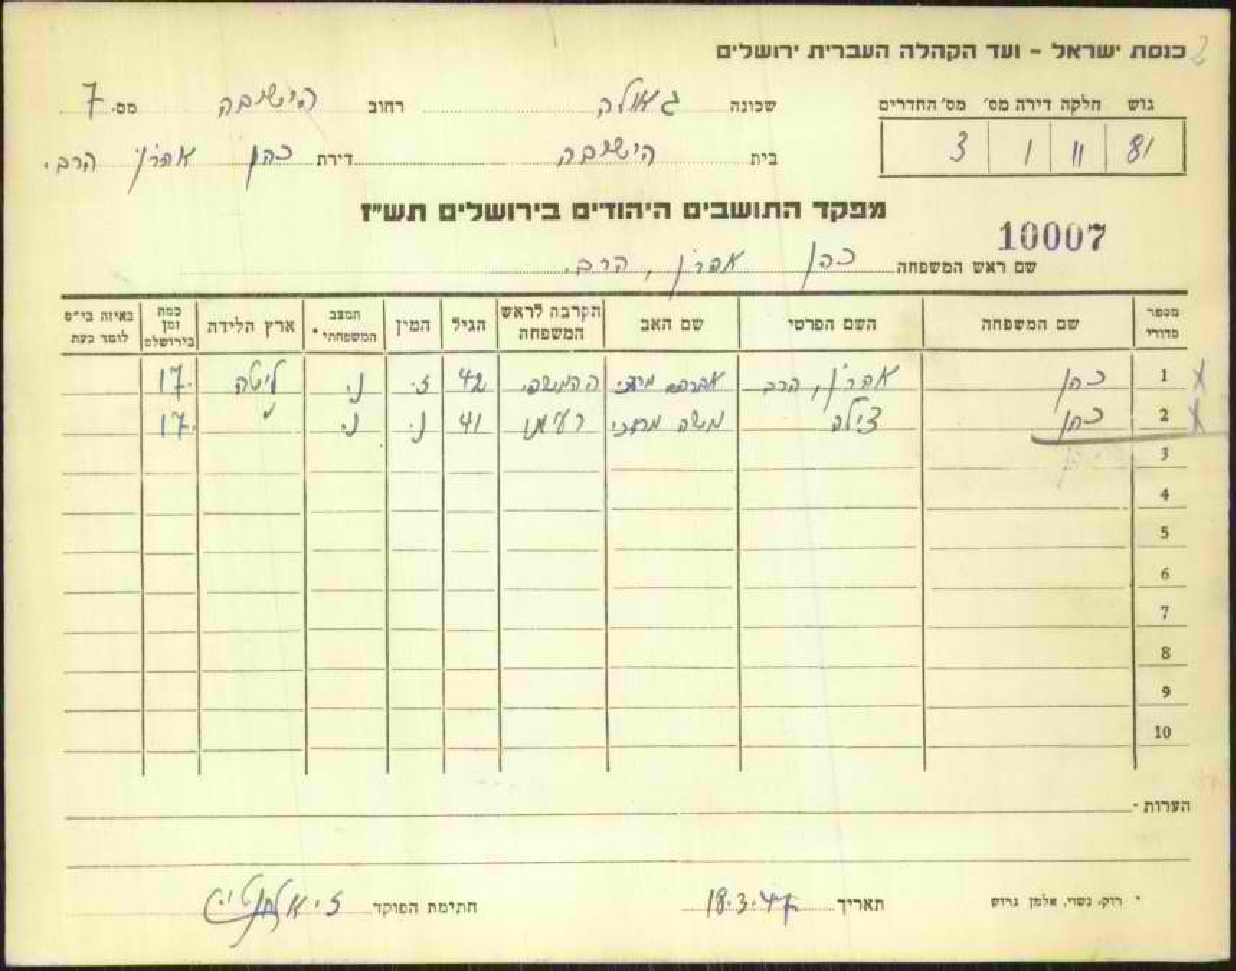 כנסת ישראל - ועד הקהלה העברית ירושלים 2
גוש חלקה דירה מס' מס' החדרים
81 11 1 3
שכונה גאולה רחוב הישיבה מס. 7
בית הישיבה דירת כהן אהרן הרב.
מפקד התושבים היהודים בירושלים תש"ז
10007
שם ראש המשפחה כהן אהרן, הרב.
מספר סדורי שם המשפחה השם הפרטי שם האב הקרבה לראש המשפחה הגיל המין המצב המשפחתי * ארץ הלידה כמה זמן בירושלם באיזה בי"ס לומד כעת
1 כהן אהרן, הרב אברהם 42 ז. נ. ליטה 17.
2 כהן צילה משה מרדכי רעיתו 41 נ. נ. " 17.
3
4
5
6
7
8
9
10
הערות -
* רוק, נשוי, אלמן גרוש תאריך 18.3.47 חתימת הפוקד